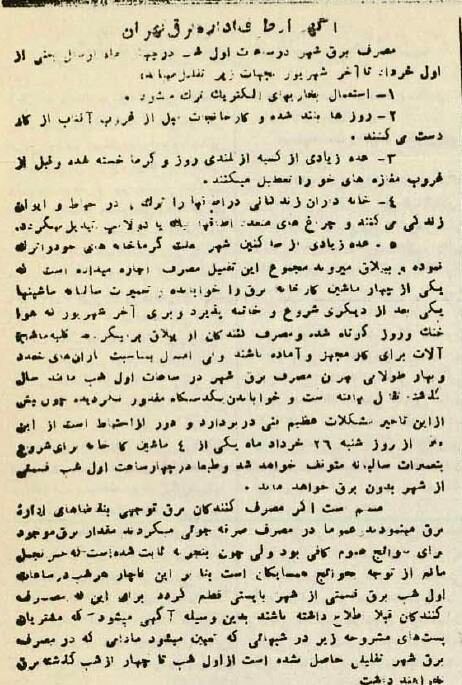 آگهی از طرف اداره برق تهران
مصرف برق شهر در ساعات اول شب در چهار ماه از سال یعنی از
اول خرداد تا آخر شهریور بجهات زیر تقلیل مییابد
۱- استعمال بخاریهای الکتریک ترک میشود .
۲- روز ها بلند شده و کارخانجات قبل از غروب آفتاب از کار
دست می کشند .
۳- عده زیادی از کسبه از بلندی روز و گرما خسته شده و قبل از
غروب مغازه های خود را تعطیل میکنند .
۴- خانه داران زندگانی در اطاقها را ترک و در حیاط و ایوان
زندگی می کنند و چراغ های متعدد اطاقها بیک یا دو لامپ تبدیل میگردد.
۵- عده زیادی از ساکنین شهر بعلت گرما خانه های خود را ترک
نموده و بییلاق میروند مجموع این تقلیل مصرف اجازه میداده است که
یکی از چهار ماشین کارخانه برق را خوابانده و تعمیرات سالیانه ماشینها
یکی بعد از دیگری شروع و خاتمه پذیرد و برای آخر شهریور که هوا
خنک و روز کوتاه شده و مصرف کنندگان از ییلاق بر میگردند کلیه ماشین
آلات برای کار مجهز و آماده باشند ولی امسال بمناسبت بارانهای ممتد
و بهار طولانی تهران مصرف برق شهر در ساعات اول شب مانند سال
گذشته تقلیل نیافته است و خواباندن یکدستگاه مقدور نگردیده چون بیش
از این تاخیر مشکلات عظیم فنی در بر دارد و دور از احتیاط است از این
از روز شنبه ۲۶ خرداد ماه یکی از ۴ ماشین کارخانه برای شروع
بتعمیرات سالیانه متوقف خواهد شد و طبعا در چهار ساعت اول شب قسمتی
از شهر بدون برق خواهد ماند .
مسلم است اگر مصرف کنندگان برق توجهی بتقاضاهای اداره
برق مینمودند و عموما در مصرف صرفه جوئی میکردند مقدار برق موجود
برای حوائج عموم کافی بود ولی چون بتجربه ثابت شده است که حس تجمل
مانع از توجه حوائج همسایگان است بنا بر این ناچار هر شب در ساعات
اول شب برق قسمتی از شهر بایستی قطع گردد برای این که مصرف
کنندگان قبلا اطلاع داشته باشند بدین وسیله آگهی میشود که مشتریان
پست‌های مشروحه زیر در شبهائی که تعیین میشود مادامی که در مصرف
برق شهر تقلیلی حاصل نشده است از اول شب تا چهار از شب گذشته برق
نخواهند داشت